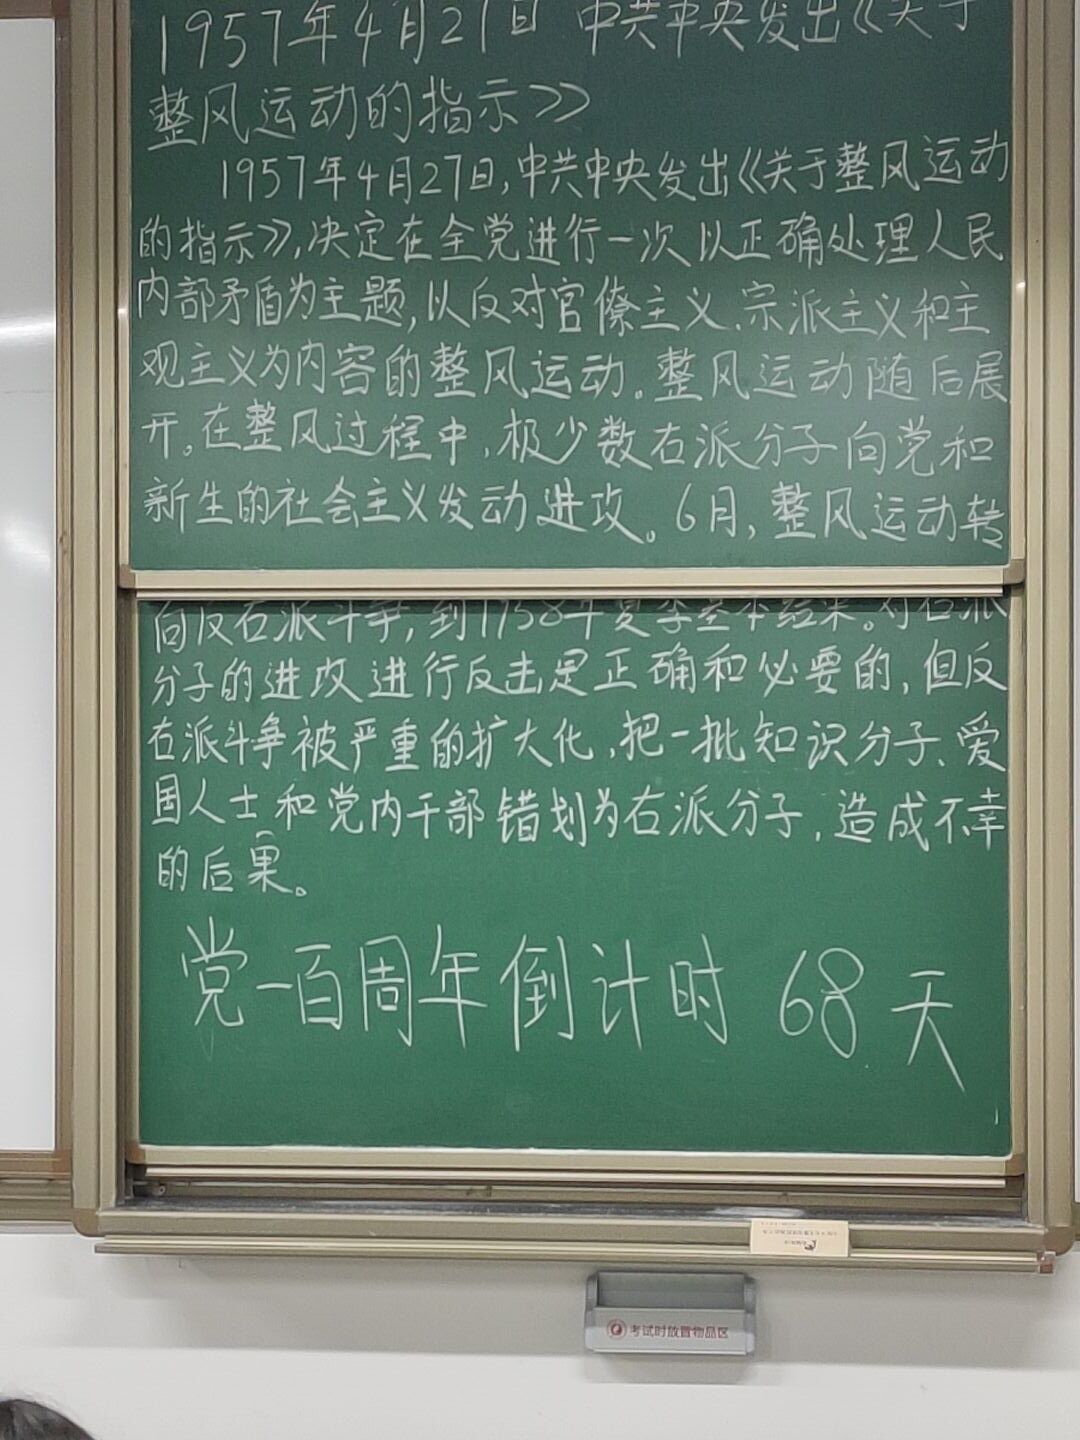 1957年4月27日 中共中央发出《关于
整风运动的指示》
1957年4月27日,中共中央发出《关于整风运动
的指示》,决定在全党进行一次以正确处理人民
内部矛盾为主题,以反对官僚主义、宗派主义和主
观主义为内容的整风运动。整风运动随后展
开。在整风过程中,极少数右派分子向党和
新生的社会主义发动进攻。6月,整风运动转
向反右派斗争,到1958年夏季基本结束。对右派
分子的进攻进行反击是正确和必要的,但反
右派斗争被严重的扩大化,把一批知识分子、爱
国人士和党内干部错划为右派分子,造成不幸
的后果。
党一百周年倒计时 68天
考试时放置物品区